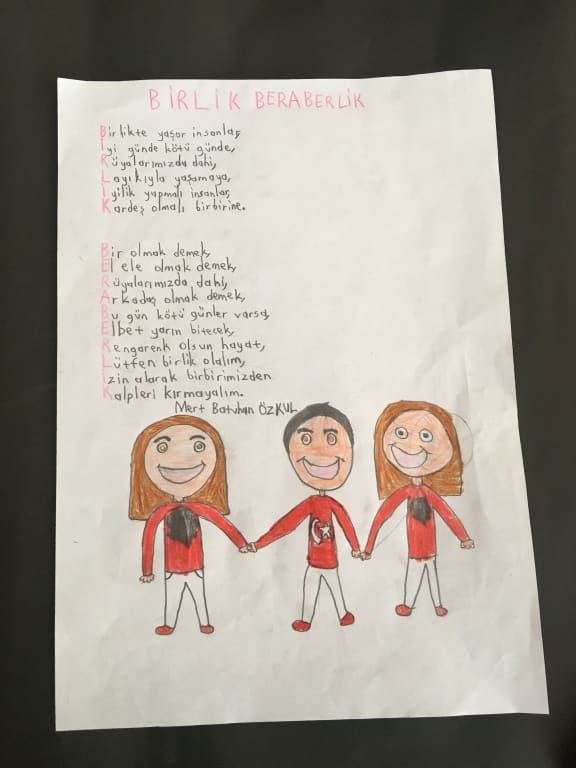 BİRLİK BERABERLİK
Birlikte yaşar insanlar,
İyi günde kötü günde,
Rüyalarımızda dahi,
Layıkıyla yaşamaya,
İyilik yapmalı insanlar,
Kardeş olmalı birbirine.
Bir olmak demek,
El ele olmak demek,
Rüyalarımızda dahi,
Arkadaş olmak demek,
Bu gün kötü günler varsa,
Elbet yarın bitecek,
Rengarenk olsun hayat,
Lütfen birlik olalım,
İzin alarak birbirimizden
Kalpleri kırmayalım.
Mert Batuhan ÖZKUL